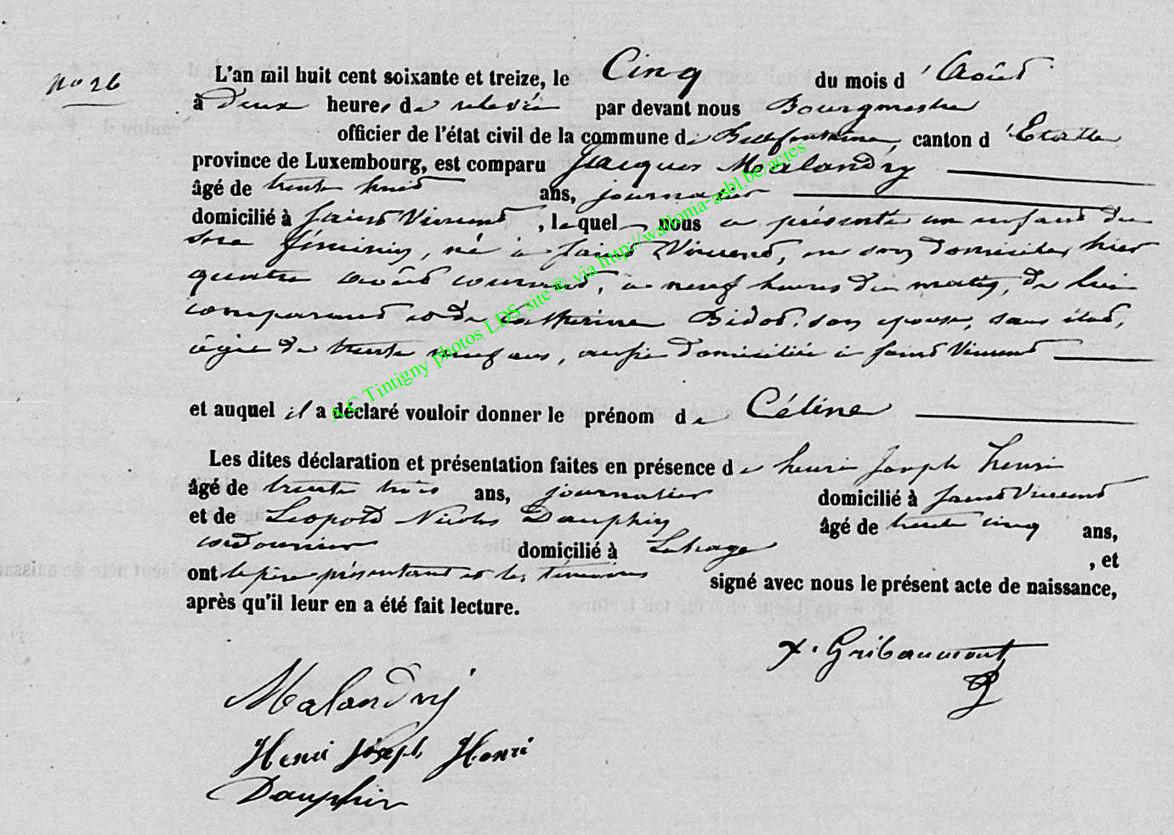 No 26
L'an mil huit cent soixante et treize, le Cinq du mois d'Août
à deux heures de relevée par devant nous Bourgmestre
officier de l'état civil de la commune de Bellefontaine, canton d'Etalle
province de Luxembourg, est comparu Jacques Malandry
âgé de trente huit ans, journalier
domicilié à Saint Vincent, lequel nous a présenté un enfant du
sexe féminin, né à Saint Vincent, en son domicile, hier
quatre août courant, à neuf heures du matin, de lui
comparant et de Catherine Bidot, son épouse, sans état,
âgée de trente neuf ans, aussi domiciliée à Saint Vincent
et auquel il a déclaré vouloir donner le prénom de Céline
Les dites déclaration et présentation faites en présence de henri Joseph henri
âgé de trente trois ans, journalier domicilié à Saint Vincent
et de Léopold Nicolas Dauphin âgé de trente cinq ans,
cordonnier domicilié à Lahage, et
ont le père présentant et les témoins signé avec nous le présent acte de naissance,
après qu'il leur en a été fait lecture.
Gribaumont
Malandry
Henri Joseph Henri
Dauphin
A.C Tintigny photos LDS site © via http://wallonia-asbl.be/actes